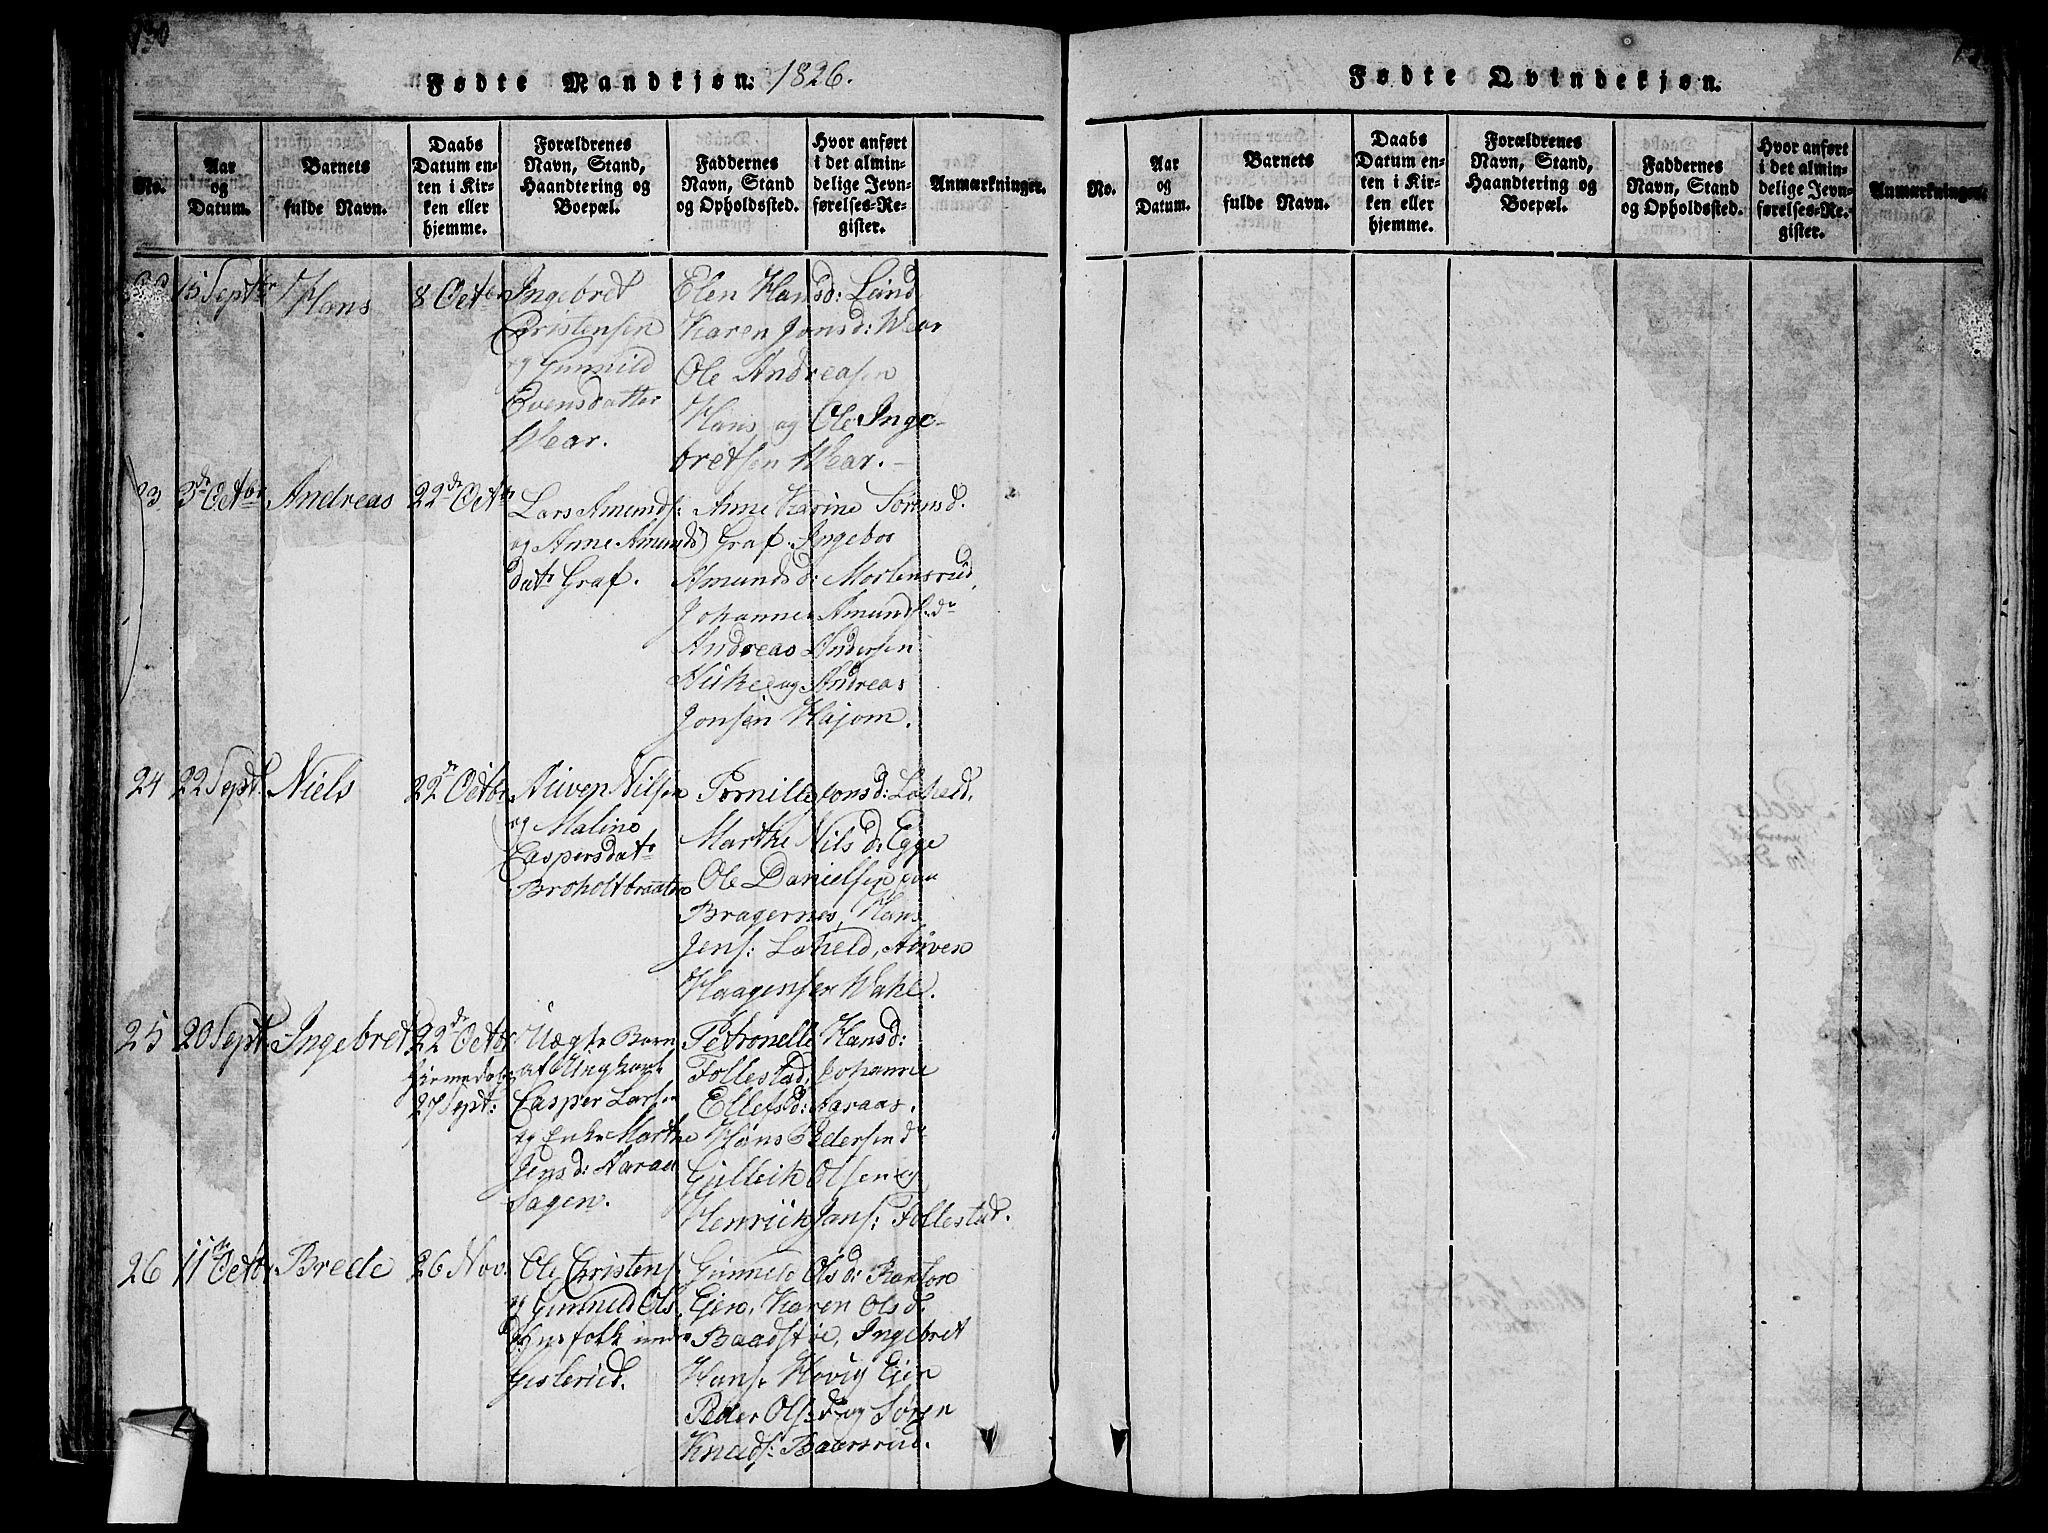 130
Fødte Mandkjøn: 1826.
No.
Aar og Datum.
Barnets fulde Navn.
Daabs Datum enten i Kirken eller hjemme.
Forældrenes Navn, Stand, Haandtering og Boepæl.
Faddernes Navn, Stand og Opholdssted.
Hvor anført i det almindelige Jevnførelses-Register.
Anmærkninger.
15 Septbr Hans 8 Octbr
Ingebret
Cristensen
og Gunnild
Evensdatter
Wear.
Elen Hansd: Lund
Karen Jonsd: Wear
Ole Andreasen
Hans og Ole Inge-
bretsen Wear.
23 3de Octbr Andreas 22de Octbr
Lars Amunds:
og Anne Amunds
datr Graf.
Anne Karine Sørensd.
Graf. Ingebor
Amundsd: Mortensrud,
Johannes Amunds: do
Andreas Andersen
og Andreas
Jonsen Hajom.
24 22 Sept. Niels 22de Octbr
Niven Nilsen
og Maline
Caspersdatr
Broholtbraaten
Pernille Jonsd: Loheld,
Marthe Nilsd: Egge
Ole Danielsen paa
Bragernes, Hans
Jens: Loheld, Niven
Haagensen Wahl.
25 20 Sept. Ingebret 22de Octbr
hjemedøbt
27 Sept:
Uægte Barn
af Ungkarl
Casper Larsen
og Enke Marthe
Jensd: Aaraas
Hagen.
Petronelle Hansd:
Follestad, Johanne
Ellefsd: Aaraas.
Hans Pedersen do
Gulleik Olsen og
Henrik Jans: Follestad.
26 11de Octbr Brede 26 Nov.
Ole Christens:
og Gunnild Ols
d: Husfolk under
Gislerud.
Gunnild Olsd:
Ejer, Karen Olsd:
Baadstøe, Ingebret
Hans: Hovig Ejer
Peder Ols: do og Søren
Knuds: Baarsrud.
Fødte Qvindekjøn.
No.
Aar og Datum.
Barnets fulde Navn.
Daabs Datum enten i Kirken eller hjemme.
Forældrenes Navn, Stand, Haandtering og Boepæl.
Faddernes Navn, Stand og Opholdssted.
Hvor anført i det almindelige Jevnførelses-Register.
Anmærkninger.